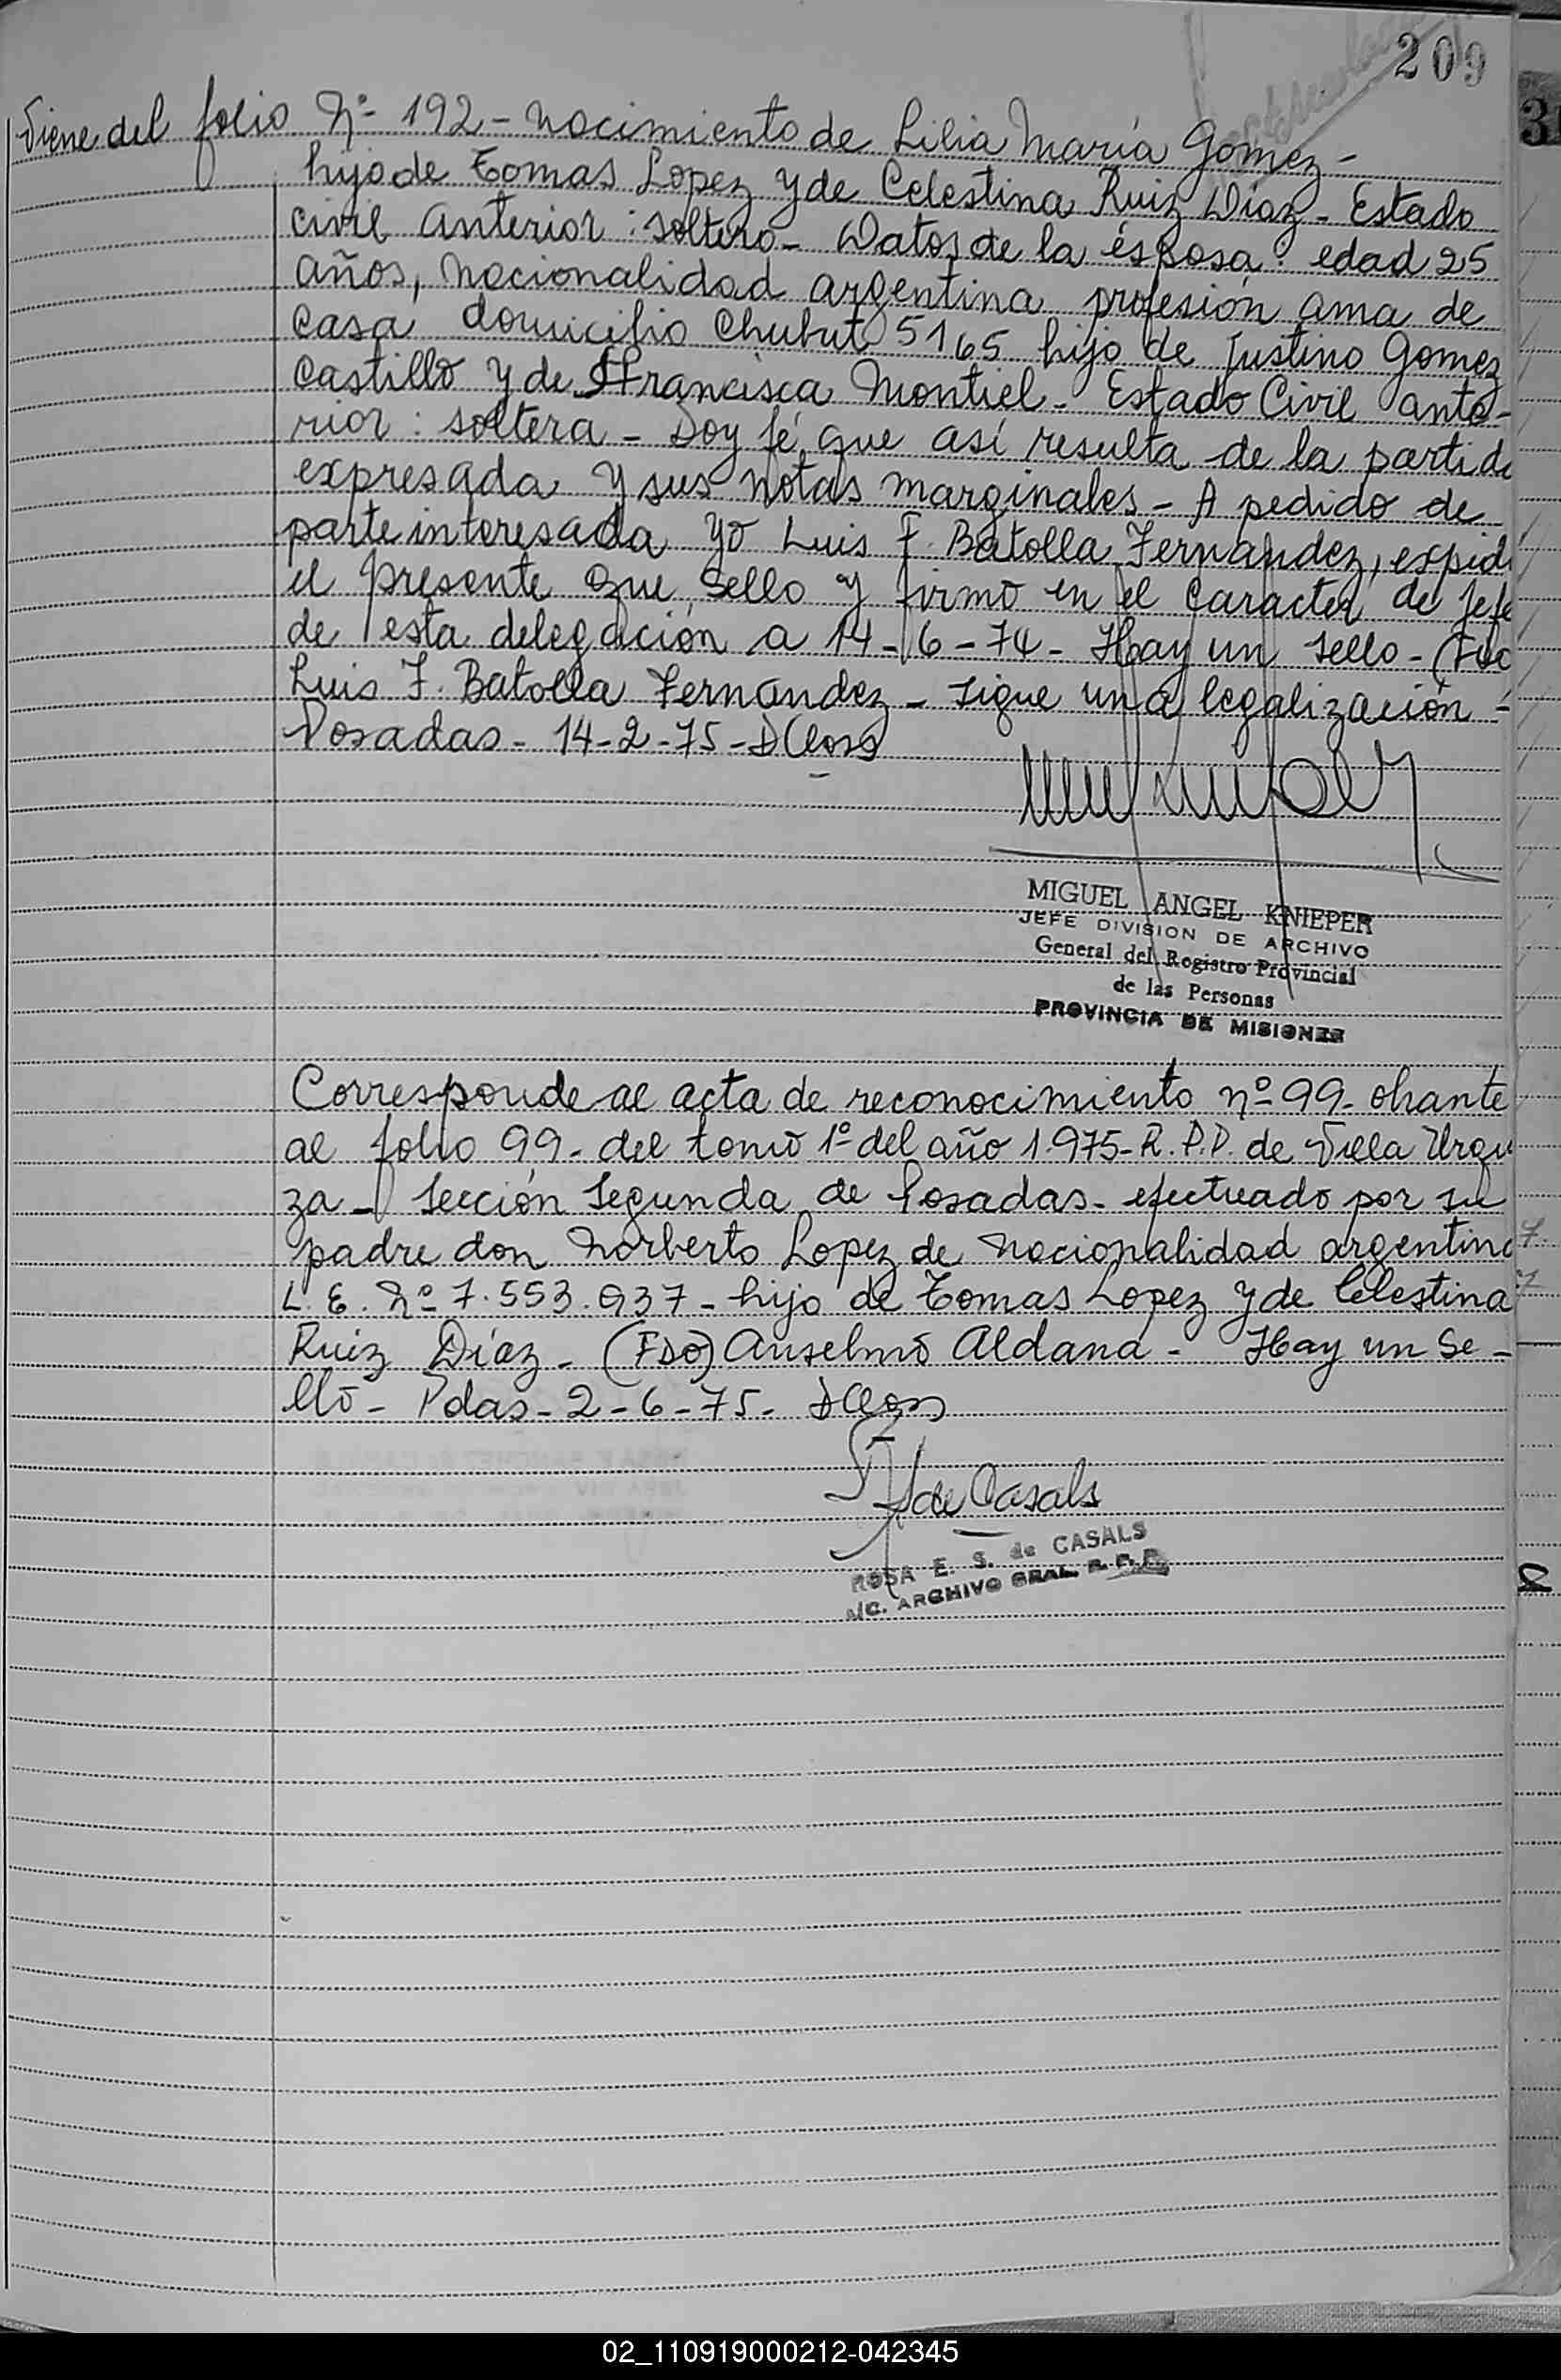 209
Viene del folio Nº 192 - nacimiento de Lilia María Gomez -
hijo de Tomas Lopez y de Celestina Ruiz Díaz - Estado
civil anterior: soltero - Datos de la esposa: edad 25
años, nacionalidad argentina profesión ama de
casa domicilio Chubut 5165 hijo de Justino Gomez
Castillo y de Francisca Montiel - Estado Civil ante-
rior: soltera - Doy fé que así resulta de la partida
expresada y sus notas marginales - A pedido de
parte interesada yo Luis F. Batolla Fernandez, expido
el presente que sello y firmo en el caracter de Jefe
de esta delegación a 14-6-74 - Hay un sello - (Fdo
Luis F. Batolla Fernandez - Sigue una legalización -
Posadas - 14-2-75 -
MIGUEL ANGEL KNIEPER
JEFE DIVISION DE ARCHIVO
General del Registro Provincial
de las Personas
PROVINCIA DE MISIONES
Corresponde al acta de reconocimiento nº 99 - obrante
al folio 99 - del tomo 1º del año 1.975 - R.P.P. de Villa Urqui
za - Sección Segunda de Posadas - efectuado por su
padre don Norberto Lopez de nacionalidad argentino
L.E. Nº 7.553.937 - hijo de Tomas Lopez y de Celestina
Ruiz Díaz - (Fdo) Anselmo Aldana - Hay un Se-
llo - Pdas - 2-6-75 -
de Casals
ROSA E. S. de CASALS
A/C. ARCHIVO GRAL. R. P. P.
02_110919000212-042345